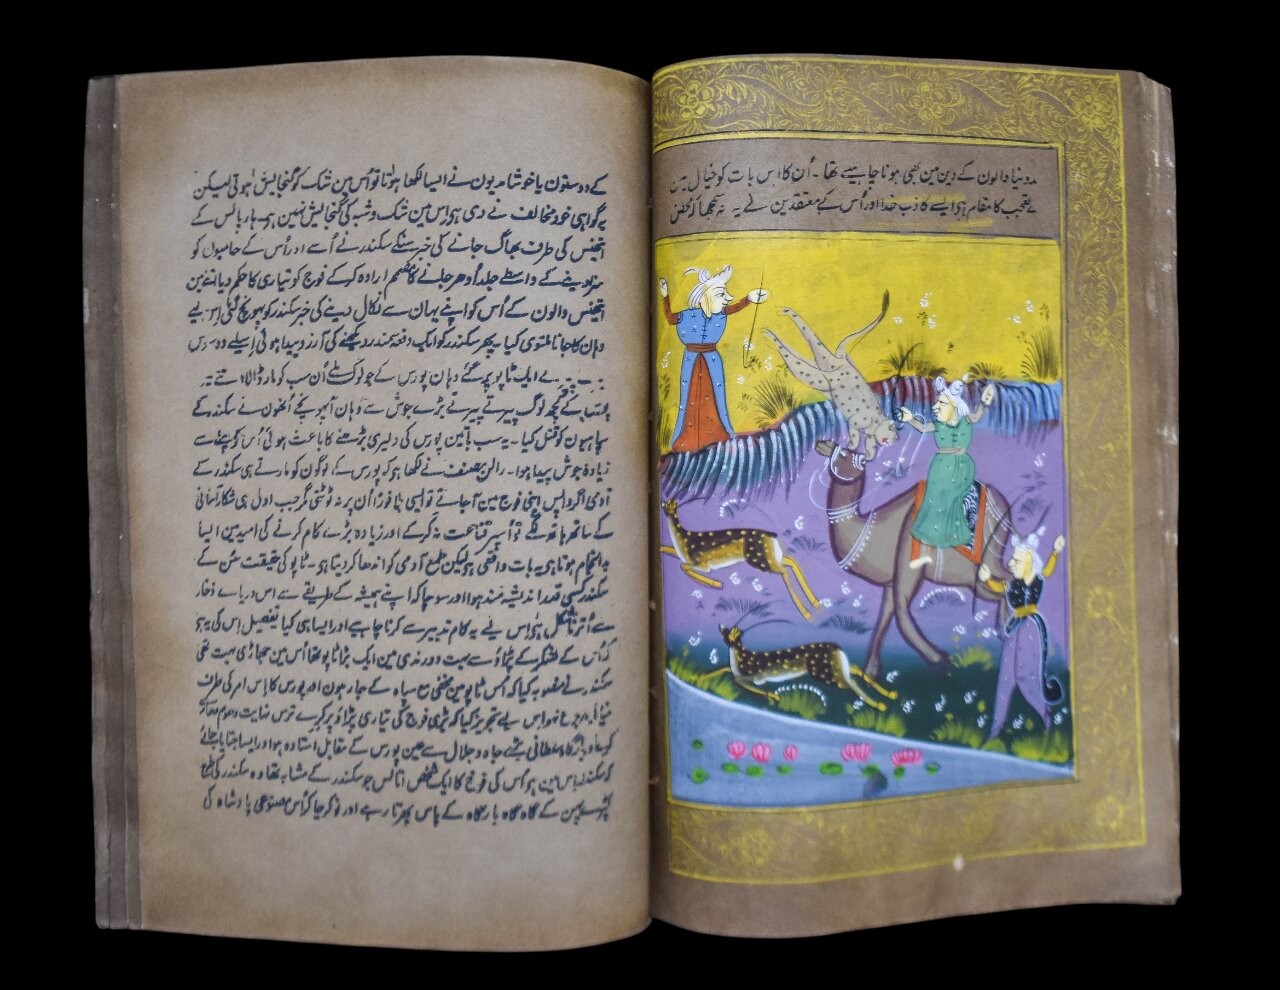 کے دوستون یا خوشامدیون نے ایسا لکھا ہوتا تو اُس مین شک کو گنجایش ہوتی لیکن
یہ گواہی خود مخالف نے دی ہو اس مین شک و شبہ کی گنجایش نہین ہی۔ ہارپالس کے
اتھینس کی طرف بھاگ جانے کی خبر سنکے سکندر نے اُسے اور اُس کے حامیون کو
سزا دینے کے واسطے جلد اُدھر جانے کا مصمم ارادہ کر کے فوج کو تیاری کا حکم دیا
اتھینس والون کے اُس کو اپنے یہان سے نکال دینے کی خبر سکندر کو پہونچ گئی اِس لیے
وہان کا جانا ملتوی کیا۔ پھر سکندر کو ایک دفعہ سمندر دیکھنے کی آرزو پیدا ہوئی اِسلیے وہ
ایک ٹاپو پر گئے وہان پورس کے جو لوگ ملے اُن سب کو مار ڈالا اتنے
کے کچھ لوگ پیرتے پیرتے بڑے جوش سے وہان آپہونچے اُنھون نے سکندر کے
سپاہیون کو قتل کیا۔ یہ سب باتین پورس کی دلیری بڑھنے کا باعث ہوئی اُس کو پہلے سے
زیادہ جوش پیدا ہوا۔ مصنف نے لکھا ہو کہ پورس کے لوگون کو مارتے ہی سکندر کے
آدمی اگر واپس اپنی فوج مین آجاتے تو ایسی بلا فوراً اُن پر نہ ٹوٹتی مگر جب اول ہی شکار آسانی
کے ساتھ ہاتھ لگے تو اُسپر قناعت نہ کر کے اور زیادہ بڑے کام کرنے کی امید مین ایسا
بد انجام ہوتا ہی یہ بات واقعی ہو لیکن طمع آدمی کو اندھا کر دیتا ہی۔ ٹاپو کی حقیقت سُن کے
سکندر کسی قدر اندیشہ مند ہوا اور سوچا کہ اپنے ہمیشہ کے طریقے سے اس دریاے ذخار
سے اُترنا مشکل ہو اس لیے یہ کام تدبیر سے کرنا چاہیے اور ایسا ہی کیا تفصیل اِس کی یہ ہی
کہ اُس کے لشکر کے پڑاؤ سے بہت دور ندی مین ایک بڑا ٹاپو تھا اُس مین جھاڑی بہت تھی
سکندر نے منصوبہ کیا کہ اُس ٹاپو مین مخفی مع سپاہ کے جا رہون اور پورس کا اِس امر کی طرف
اس لیے تجویز کیا کہ بڑی فوج کی تیاری پڑاؤ پر کر کے نہایت دھوم دھام
جاہ و جلال سے عین پورس کے مقابل استادہ ہو اور ایسا جتایا جائے
کہ سکندر اس مین ہو اُس کی فوج کا ایک شخص اٹالس جو سکندر کے مشابہ تھا وہ سکندر کی طرح
کپڑے پہن کے گاہ گاہ بارگاہ کے پاس پھرتا رہے اور نوکر چاکر اُس مصنوعی بادشاہ کی
مدد دنیا والون کے دین مین نہین ہونا چاہیے تھا۔ اُن کا اس بات کو خیال مین
یہ تعجب کا مقام ہی ایسے کاذب خدا اور اُس کے معتقدین نے یہ نہ سمجھا کہ محض